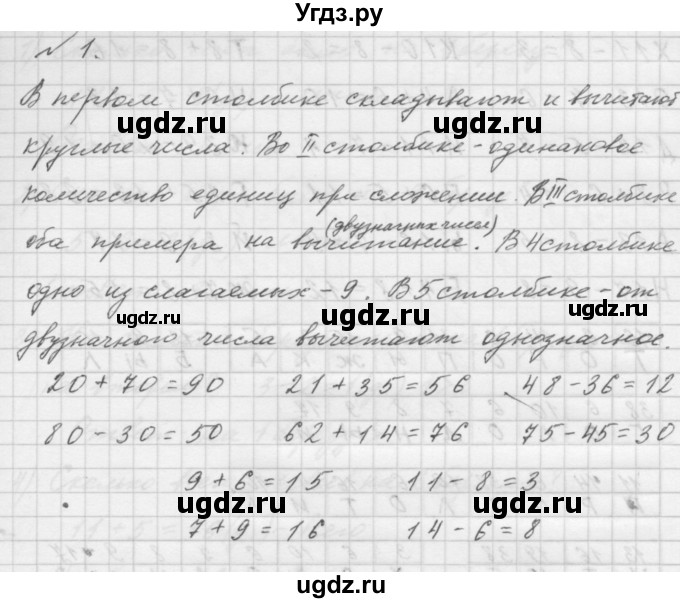 Угдз.ру
№ 1.
В первом столбике складывают и вычитают
круглые числа. Во II столбике - одинаковое
количество единиц при сложении. В III столбике
(двузначных чисел)
оба примера на вычитание. В 4 столбике
одно из слагаемых - 9. В 5 столбике - от
двузначного числа вычитают однозначное.
20 + 70 = 90 21 + 35 = 56 48 - 36 = 12
80 - 30 = 50 62 + 14 = 76 75 - 45 = 30
9 + 6 = 15 11 - 8 = 3
7 + 9 = 16 14 - 6 = 8
ugdz.ru
ugdz.ru
ugdz.ru
ugdz.ru
ugdz.ru
ugdz.ru
ugdz.ru
ugdz.ru
ugdz.ru